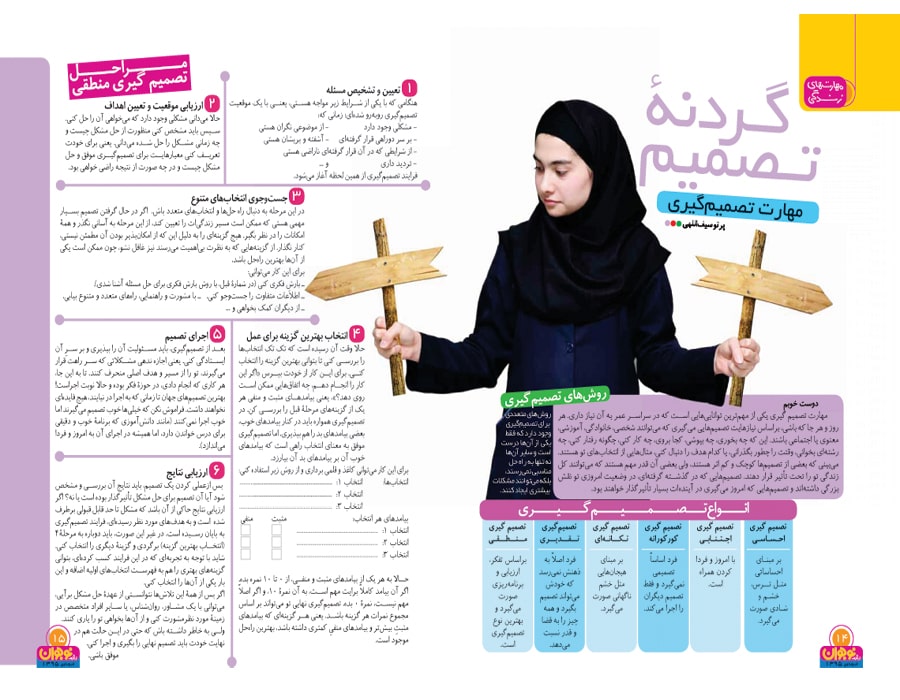 مهارت‌های
زندگی
گردنهٔ
تصمیم
مهارت تصمیم‌گیری
پرتو سیف‌اللهی
دوست خوبم
مهارت تصمیم گیری یکی از مهم‌ترین توانایی‌هایی اسـت که در سراسـر عمر به آن نیاز داری. هر
روز و هر جا که باشی، براساس نیازهایت تصمیم‌هایی می‌گیری که می‌توانند شخصی، خانوادگی، آموزشی،
معنوی یا اجتماعی باشند. این که چه بخوری، چه بپوشی، کجا بروی، چه کار کنی، چگونه رفتار کنی، چه
رشته‌ای بخوانی، وقتت را چطور بگذرانی، یا کدام هدف را دنبال کنی، مثال‌هایی از انتخاب‌های تو هستند.
می‌بینی که بعضی از تصمیم‌ها کوچک و کم اثر هستند، ولی بعضی آن قدر مهم هستند که می‌توانند کل
زندگی تو را تحت تأثیر قرار دهند. تصمیم‌هایی که در گذشـته گرفته‌ای، در وضعیت امروزی تو نقش
بزرگی داشته‌اند و تصمیم‌هایی که امروز می‌گیری در آینده‌ات بسیار تأثیرگذار خواهند بود.
روش‌های تصمیم‌گیری
روش‌های متعددی
برای تصمیم‌گیری
وجود دارد که فقط
یکی از آن‌ها درست
است و سایر آن‌ها
نه تنها به راه حل
مناسبی نمی‌رسند،
بلکه می‌توانند مشکلات
بیشتری ایجاد کنند.
انواع تصمیم گیری
تصمیم گیری
احساسی
بر مبنای
احساساتی
مثل ترس،
خشم و
شادی صورت
می‌گیرد.
تصمیم گیری
اجتنابی
با امروز و فردا
کردن همراه
است.
تصمیم گیری
کورکورانه
فرد اساساً
تصمیمی
نمی‌گیرد و فقط
تصمیم دیگران
را اجرا می‌کند.
تصمیم گیری
تکانه‌ای
بر مبنای
هیجان‌هایی
مثل خشم
ناگهانی صورت
می‌گیرد.
تصمیم‌گیری
تقدیری
فرد اصلاً به
ذهنش نمی‌رسد
که خودش
می‌تواند تصمیم
بگیرد و همه
چیز را به قضا
و قدر نسبت
می‌دهد.
تصمیم گیری
منطقی
براساس تفکر،
ارزیابی و
برنامه‌ریزی
صورت
می‌گیرد و
بهترین نوع
تصمیم‌گیری
است.
۱۴
نوجوان
مراحل
تصمیم گیری منطقی
۱ تعیین و تشخیص مسئله
هنگامی که با یکی از شرایط زیر مواجه هستی، یعنـی با یک موقعیت
تصمیم‌گیری روبه‌رو شده‌ای؛ زمانی که:
- مشکلی وجود دارد - از موضوعی نگران هستی
- بر سر دوراهی قرار گرفته‌ای - آشفته و پریشان هستی
- از شرایطی که در آن قرار گرفته‌ای ناراضی هستی
- تردید داری و ...
فرایند تصمیم‌گیری از همین لحظه آغاز می‌شود.
۲ ارزیابی موقعیت و تعیین اهداف
حالا می‌دانی مشکلی وجود دارد که می‌خواهی آن را حل کنی.
سـپس باید مشخص کنی منظورت از حل مشکل چیست و
چه زمانی مشـکل را حل شـده می‌دانی. یعنی برای خودت
تعریـف کنی معیارهایت برای تصمیم‌گیری موفق و حل
مشکل چیست و در چه صورت از نتیجه راضی خواهی بود.
۳ جست‌وجوی انتخاب‌های متنوع
در این مرحله به دنبال راه حل‌ها و انتخاب‌های متعدد باش. اگر در حال گرفتن تصمیم بسـیار
مهمی هستی که ممکن است مسیر زندگی‌ات را تعیین کند، از این مرحله به آسانی نگذر و همهٔ
امکانات را در نظر بگیر. هیچ گزینه‌ای را به دلیل این که از امکان‌پذیر بودن آن مطمئن نیستی،
کنار نگذار. از گزینه‌هایی که به نظرت بی‌اهمیت می‌رسند نیز غافل نشو، چون ممکن است یکی
از آن‌ها بهترین راه‌حل باشد.
برای این کار می‌توانی:
ـ بارش فکری کنی (در شمارهٔ قبل، با روش بارش فکری برای حل مسئله آشنا شدی).
ـ اطلاعات متفاوت را جست‌وجو کنی. ـ با مشورت و راهنمایی، راه‌های متعدد و متنوع بیابی.
ـ از دیگران کمک بخواهی و ...
۴ انتخاب بهترین گزینه برای عمل
حالا وقت آن رسیده است که تک تک انتخاب‌ها
را بررسی کنی تا بتوانی بهترین گزینه را انتخاب
کنی. برای ایـن کار از خودت بپرس «اگر این
کار را انجام دهم، چه اتفاق‌هایی ممکن است
روی دهد؟»، یعنی پیامدهـای مثبت و منفی هر
یک از گزینه‌های مرحلهٔ قبل را بررسی کن. در
تصمیم‌گیری همواره باید در کنار پیامدهای خوب،
بعضی پیامدهای بد را هم بپذیری. اما تصمیم‌گیری
موفق به معنای انتخاب راهی است که پیامدهای
خوب آن بر پیامدهای بد آن بچربد.
برای این کار می‌توانی کاغذ و قلمی برداری و از روش زیر استفاده کنی:
انتخاب‌ها: انتخاب ۱:
انتخاب ۲:
انتخاب ۳:
پیامدهای هر انتخاب: مثبت منفی
انتخاب ۱:
انتخاب ۲:
انتخاب ۳:
حـالا به هر یک از پیامدهای مثبت و منفـی، از ۰ تا ۱۰ نمره بده.
اگر آن پیامد کاملاً برایت مهم اسـت، به آن نمرهٔ ۱۰، و اگر اصلاً
مهم نیسـت، نمرهٔ ۰ بده. تصمیم‌گیری نهایی تو می‌تواند بر اساس
مجموع نمرات هر گزینه باشـد. یعنی هر گزینه‌ای که پیامدهای
مثبت بیش‌تر و پیامدهای منفی کمتری داشته باشد، بهترین راه‌حل
موجود است.
۵ اجرای تصمیم
بعـد از تصمیم‌گیری، باید مسـئولیت آن را بپذیری و بر سـر آن
ایستادگی کنی. یعنی اجازه ندهی مشکلاتی که سر راهت قرار
می‌گیرند، تو را از مسیر و هدف اصلی منحرف کنند. تا به این جا،
هر کاری که انجام دادی، در حوزهٔ فکر بوده و حالا نوبت اجراست!
بهترین تصمیم‌های جهان تا زمانی که به اجرا در نیایند، هیچ فایده‌ای
نخواهند داشت. فراموش نکن که خیلی‌ها خوب تصمیم می‌گیرند اما
خوب اجرا نمی‌کنند (مانند دانش‌آموزی که برنامهٔ خوب و دقیقی
برای درس خواندن دارد، اما همیشه در اجرای آن به امروز و فردا
می‌کند).
۶ ارزیابی نتایج
پس ازعملی کردن یک تصمیم باید نتایج آن بررسـی و مشخص
شود آیا آن تصمیم برای حل مشکل تأثیرگذار بوده است یا نه؟ اگر
ارزیابی نتایج حاکی از آن باشد که مشکل تا حد قابل قبولی برطرف
شده است و به هدف‌های مورد نظر رسیده‌ای، فرایند تصمیم‌گیری
به پایان رسـیده است. در غیر این صورت، باید دوباره به مرحلهٔ ۴
(انتخـاب بهترین گزینه) برگردی و گزینهٔ دیگری را انتخاب کنی.
شاید با توجه به تجربه‌ای که در این فرایند کسب کرده‌ای، بتوانی
گزینه‌های بهتری را هم به فهرست انتخاب‌های اولیه اضافه و این
بار یکی از آن‌ها را انتخاب کنی.
اگر پس از همهٔ این تلاش‌ها نتوانستی از عهدهٔ حل مشکل بر آیی،
می‌توانی با یک مشـاور، روان‌شناس، یا سـایر افراد متخصص در
زمینهٔ مورد نظرمشورت کنی و از آن‌ها بخواهی تو را یاری کنند.
ولـی به خاطر داشـته باش که حتی در این حالت هم در
نهایت خودت باید تصمیم نهایی را بگیری و اجرا کنی.
موفق باشی.
۱۵
نوجوان